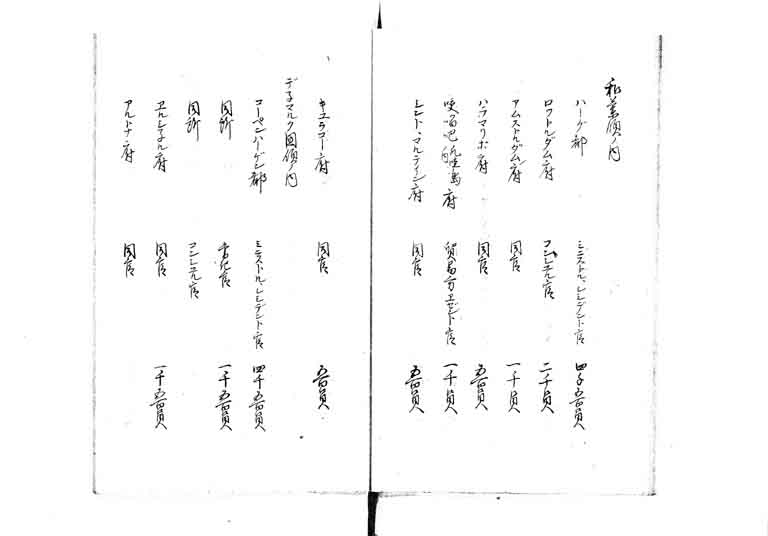 和蘭領ノ内
ハーグ都 ミニストル、レシデント官 四千五百員
ロットルダム府 コンシユル官 二千員
アムストルダム府 同官 一千員
ハラマリボ府 同官 五百員
咬𠺕吧 府 貿易方エゼント官 一千員
シント、マルティン府 同官 五百員
キユラコー府 同官 五百員
デネマルク国領ノ内
コーペンハーゲン都 ミニストル、レシデント官 四千五百員
同所 書記官 一千五百員
同所 コンシユル官
府 同官 一千五百員
アルトナ府 同官